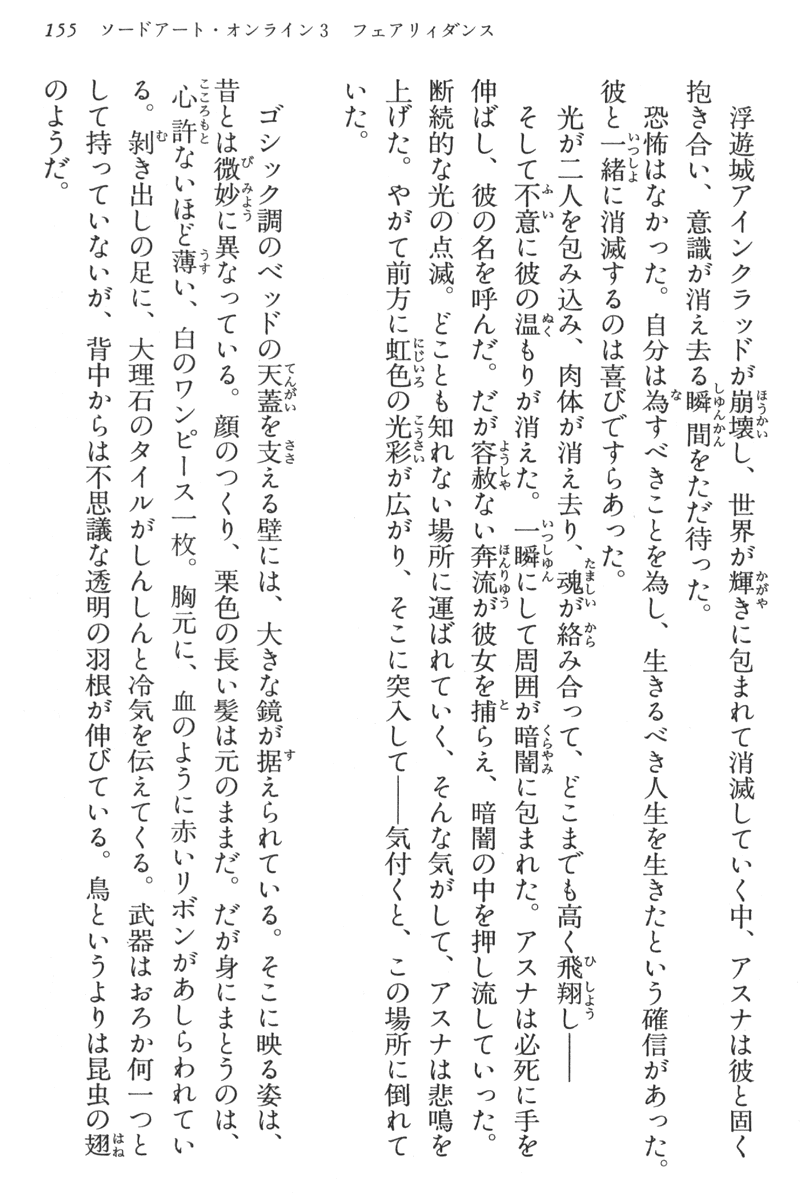 155 ソードアート・オンライン3 フェアリィダンス
浮遊城アインクラッドが崩壊し、世界が輝きに包まれて消滅していく中、アスナは彼と固く
抱き合い、意識が消え去る瞬間をただ待った。
恐怖はなかった。自分は為すべきことを為し、生きるべき人生を生きたという確信があった。
彼と一緒に消滅するのは喜びですらあった。
光が二人を包み込み、肉体が消え去り、魂が絡み合って、どこまでも高く飛翔し――
そして不意に彼の温もりが消えた。一瞬にして周囲が暗闇に包まれた。アスナは必死に手を
伸ばし、彼の名を呼んだ。だが容赦ない奔流が彼女を捕らえ、暗闇の中を押し流していった。
断続的な光の点滅。どことも知れない場所に運ばれていく、そんな気がして、アスナは悲鳴を
上げた。やがて前方に虹色の光彩が広がり、そこに突入して――気付くと、この場所に倒れて
いた。
ゴシック調のベッドの天蓋を支える壁には、大きな鏡が据えられている。そこに映る姿は、
昔とは微妙に異なっている。顔のつくり、栗色の長い髪は元のままだ。だが身にまとうのは、
心許ないほど薄い、白のワンピース一枚。胸元に、血のように赤いリボンがあしらわれてい
る。剝き出しの足に、大理石のタイルがしんしんと冷気を伝えてくる。武器はおろか何一つと
して持っていないが、背中からは不思議な透明の羽根が伸びている。鳥というよりは昆虫の翅
のようだ。